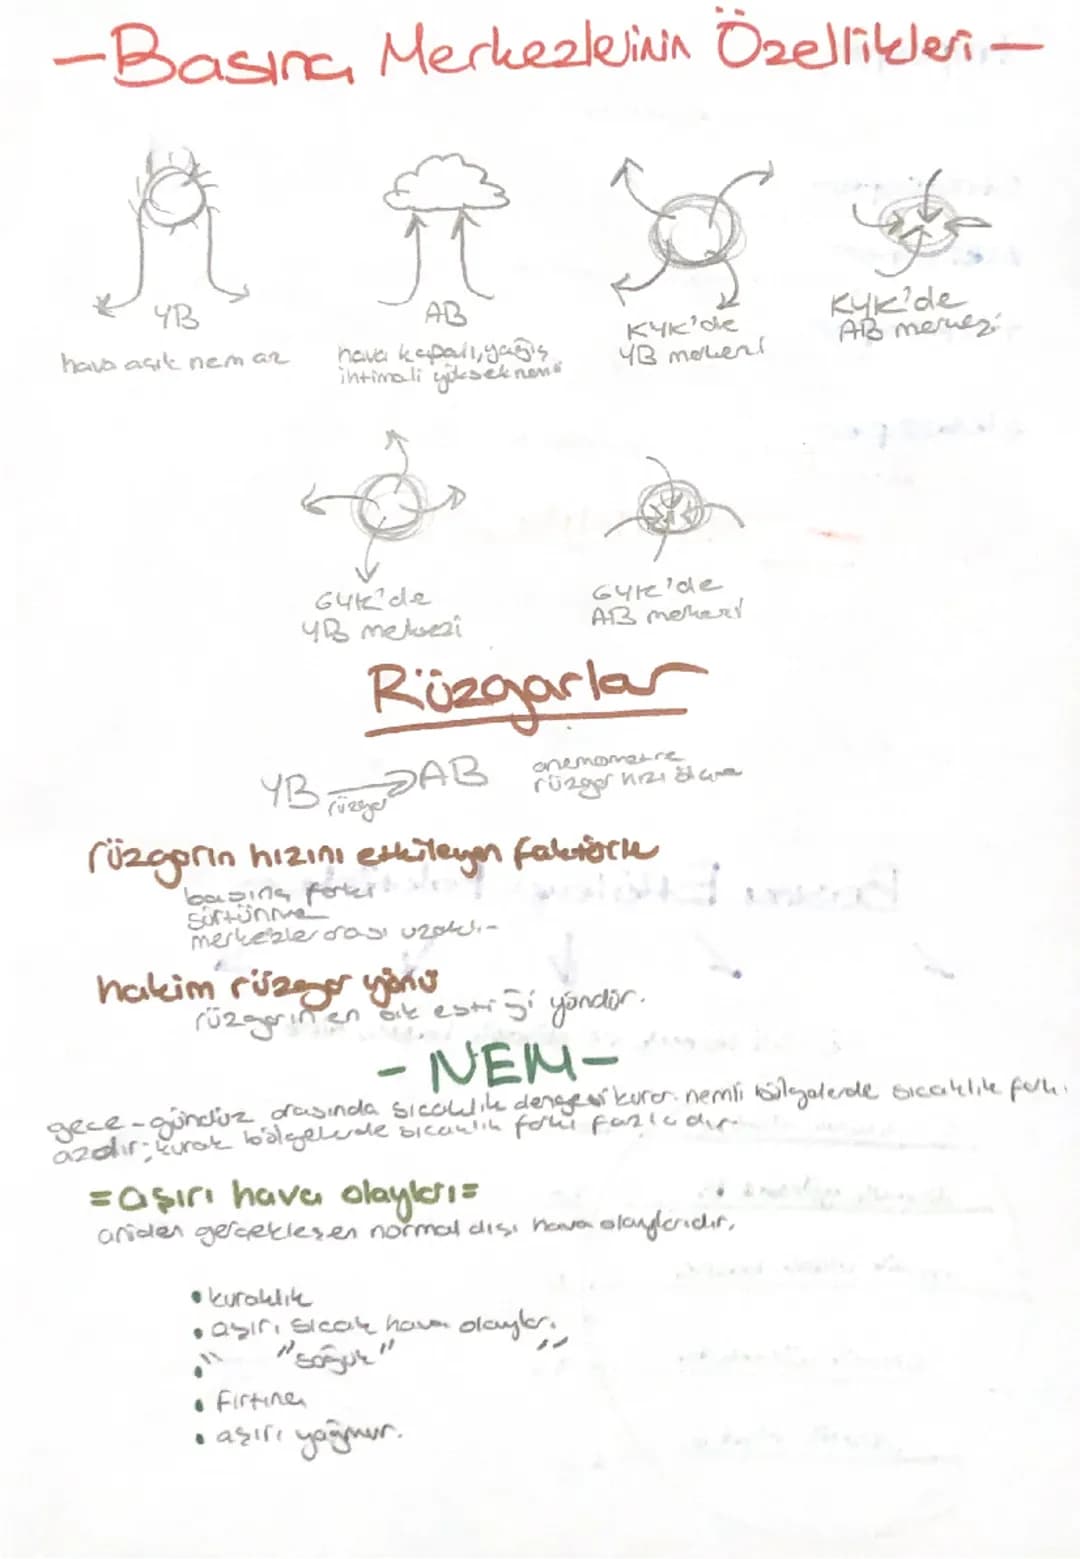 -Basınç Merkezlerinin Özellikleri-
YB
hava açık nem az
AB
hava kapalı, yağış
ihtimali yüksek nem
KYK'de
YB merkezi
KYK'de
AB merkezi
GYK'de
YB merkezi
GYK'de
AB merkezi
Rüzgarlar
YB rüzgar AB
anemometre
rüzgar hızı ölçme
rüzgarın hızını etkileyen faktörle
basınç farkı
sürtünme
merkezler arası uzaklı-
hakim rüzgar yönü
rüzgarın en sık estiği yöndür.
- NEM -
gece-gündüz arasında sıcaklık dengesi kurar. nemli bölgelerde sıcaklık farkı
azdır; kurak bölgelerde sıcaklık farkı fazladır.
=aşırı hava olayları=
aniden gerçekleşen normal dışı hava olaylarıdır.
• kuraklık
• aşırı sıcak hava olayları.
• " "soğuk" "
• fırtına
• aşırı yağmur.